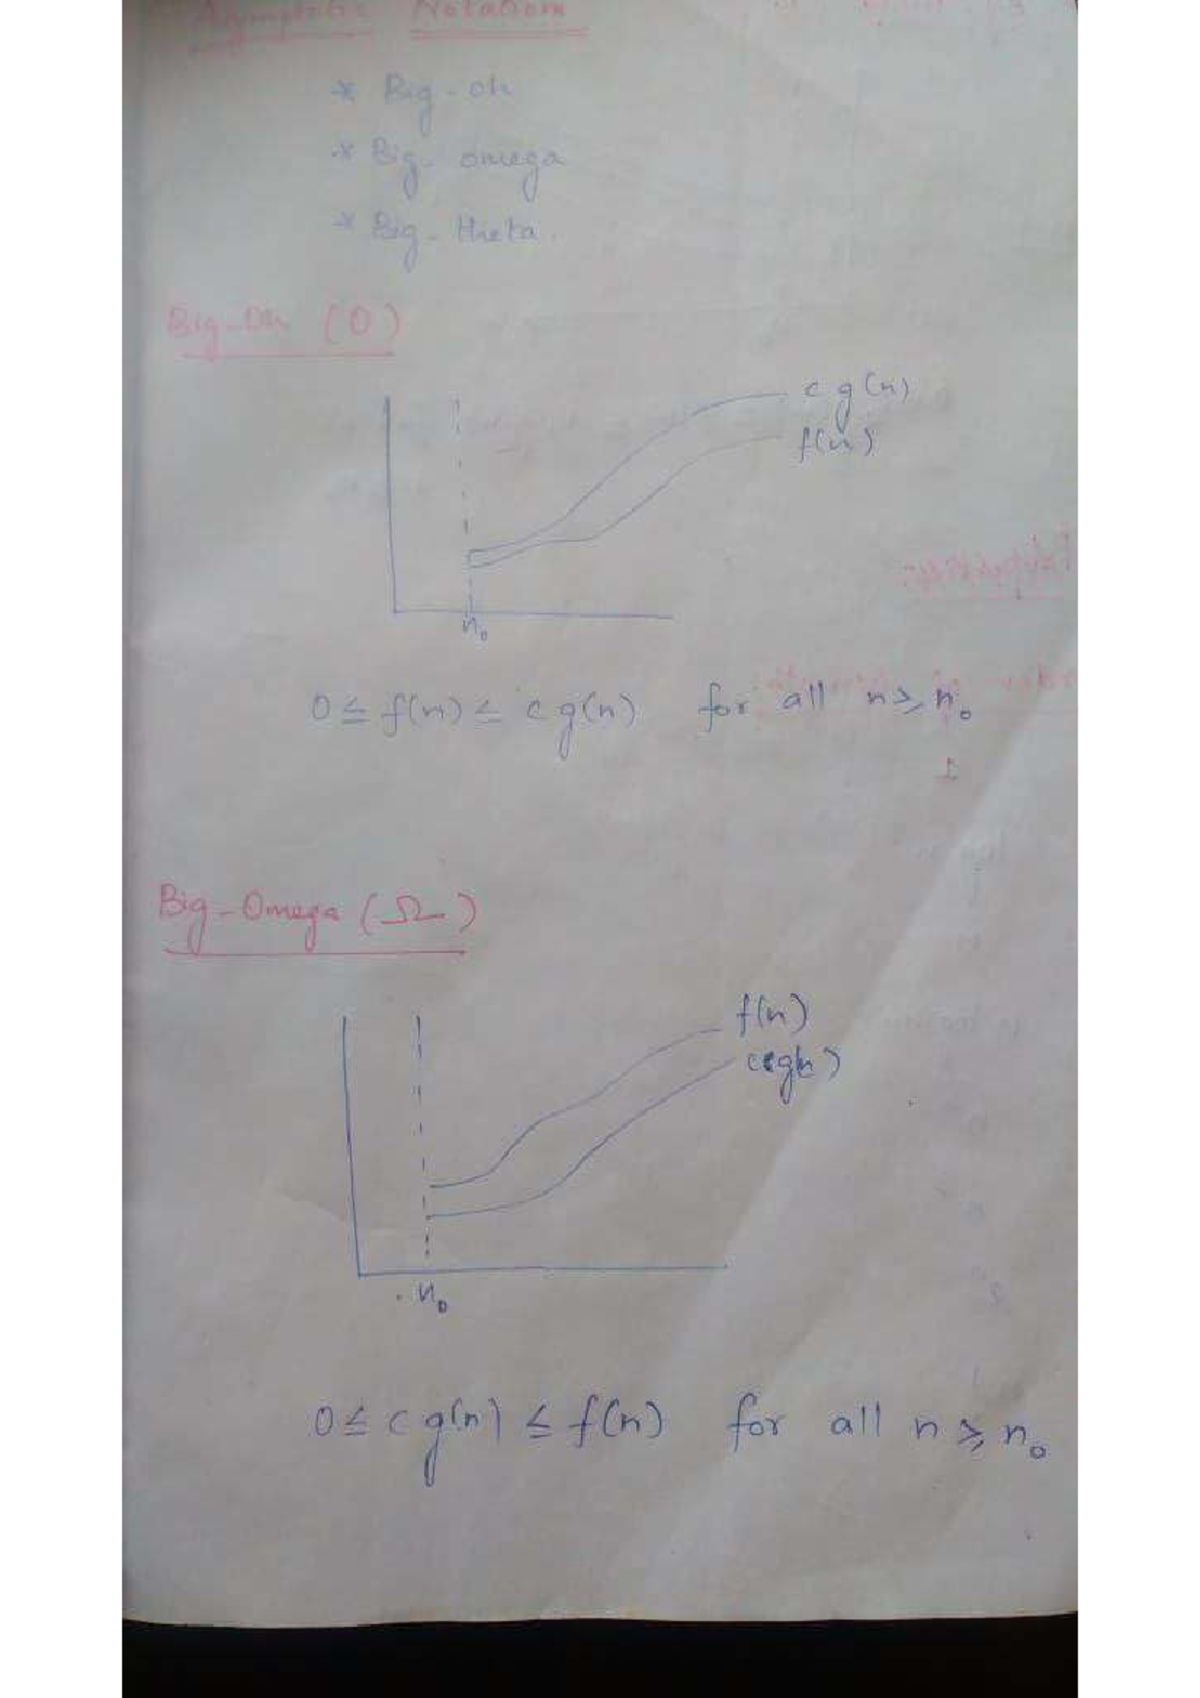 Asymptotic Notation
* Big-Oh
* Big-omega
* Big-theta.
Big-Oh (O)
c g(n)
f(n)
n₀
0 ≤ f(n) ≤ c g(n) for all n ≥ n₀
Big-Omega (Ω)
f(n)
c g(n)
n₀
0 ≤ c g(n) ≤ f(n) for all n ≥ n₀